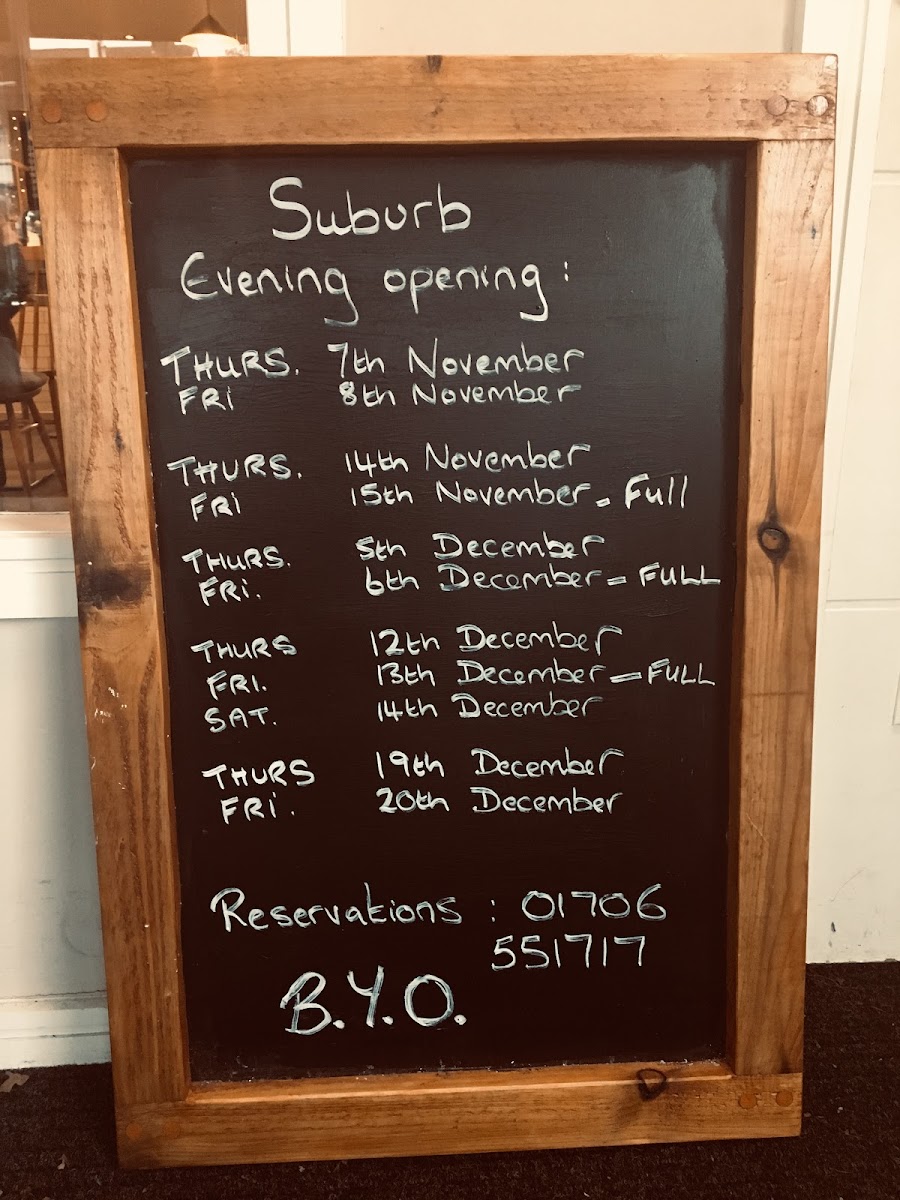 Suburb
Evening opening:
THURS. 7th November
FRI 8th November
THURS. 14th November
FRI 15th November - Full
THURS. 5th December
FRI. 6th December - FULL
THURS 12th December
FRI. 13th December - FULL
SAT. 14th December
THURS 19th December
FRI. 20th December
Reservations : 01706
551717
B.Y.O.